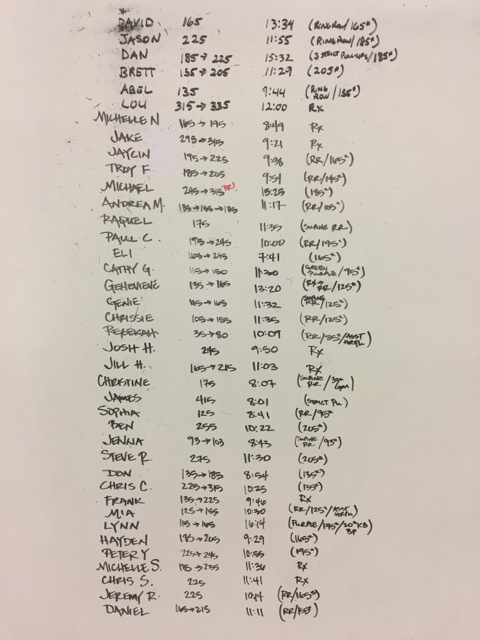 DAVID 165 13:34 (RING ROW/165#)
JASON 225 11:55 (RING ROW/185#)
DAN 185→225 15:32 (3 STRICT PULLUPS/185#)
BRETT 135→205 11:29 (205#)
ABEL 135 9:44 (RING ROW/135#)
LOU 315→335 12:00 RX
MICHELLE N 165→195 8:49 Rx
JAKE 295→315 9:21 Rx
JAYCIN 195→225 9:36 (RR/165#)
TROY F 185→205 9:54 (RR/145#)
MICHAEL 245→315 PR! 13:25 (195#)
ANDREA M. 135→155→185 11:17 (RR/115#)
RAQUEL 175 11:35 RR)
PAUL C. 195→245 10:00 (RR/195#)
ELI 165→245 7:41 (165#)
CATHY G. 115→150 11:30 (GREEN PURPLE/95#)
GENEVIEVE 135→165 13:20 RR/125#)
GENIE 115→165 11:32 RR/125#)
CHRISSIE 105→155 11:35 (RR/125#)
REBEKAH 35→80 10:09 (RR/85#/ASST
JOSH H. 245 9:50 Rx
JILL H. 165→215 11:03 Rx
CHRISTINE 175 8:07 RR/
JAMES 415 8:01 (STRICT PU)
SOPHIA 125 8:41 (RR/95#
BEN 255 10:22 (205#)
JENNA 93→103 8:43 RR/95#)
STEVE R. 275 11:30 (205#)
DON 135→185 8:54 (135#)
CHRIS C. 225→315 10:25 (135#
FRANK 135→225 9:46 Rx
MIA 125→155 10:30 (RR/125#/ASST
LYNN 115→165 16:14 (PURPLE/145#/20# KB
HAYDEN 185→205 9:29 (165#)
PETER Y 225→245 10:55 (195#)
MICHELLE S. 185→235 11:36 Rx
CHRIS S. 225 11:41 Rx
JEREMY R. 225 (RR/165#)
DANIEL 165→215 11:11 (RR/155#)